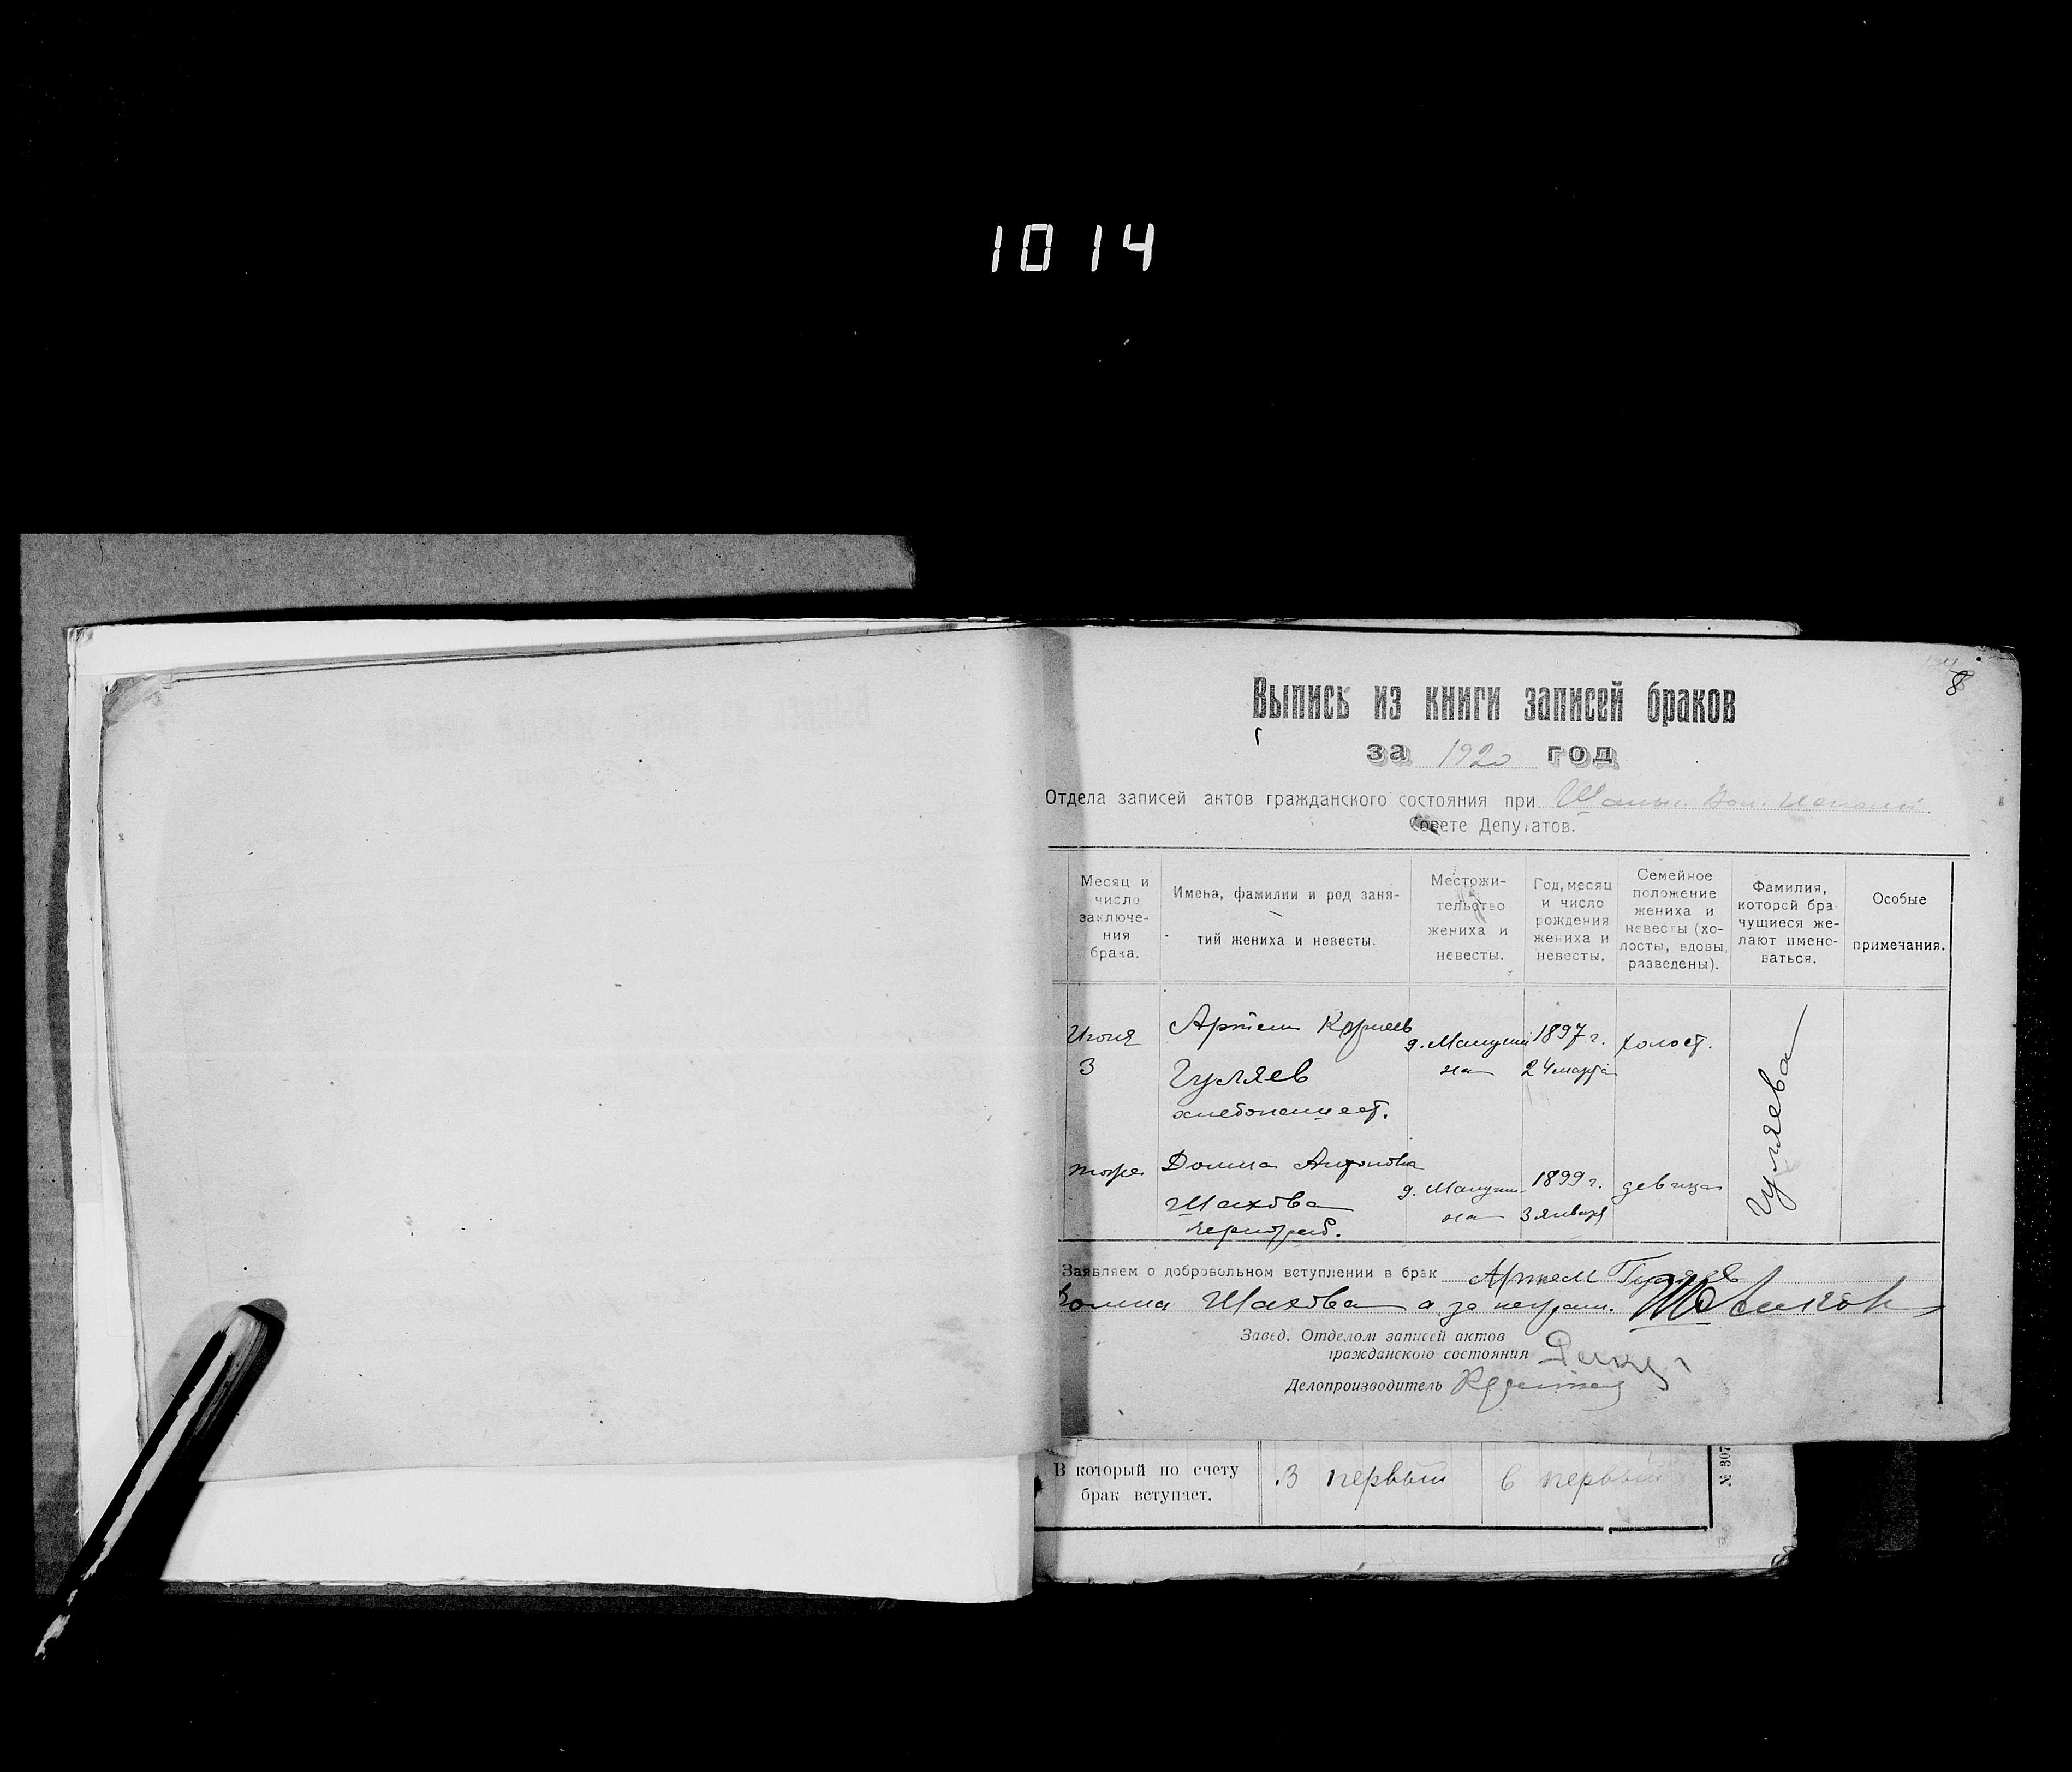 1014
8
Выпись из книги записей браков
за 1920 год
Отдела записей актов гражданского состояния при
Совете Депутатов.
Месяц и число заключе-ния брака.
Имена, фамилии и род заня-тий жениха и невесты.
Местожи-тельство жениха и невесты.
Год, месяц и число рождения жениха и невесты.
Семейное положение жениха и невесты (хо-лосты, вдовы, разведены).
Фамилия, которой бра-чущиеся же-лают имено-ваться.
Особые примечания.
Июня
3
Артем
Гуляев
1897 г.
24 марта
холост.
Гуляева
тоже
Домна Антонова
Шахова
1899 г.
3 января
девица
Заявляем о добровольном вступлении в брак Артем Гуляев
Домна Шахова а за неграм.
Завед. Отделом записей актов
гражданского состояния
Делопроизводитель
В который по счету брак вступает.
В первый
в первый
№ 307